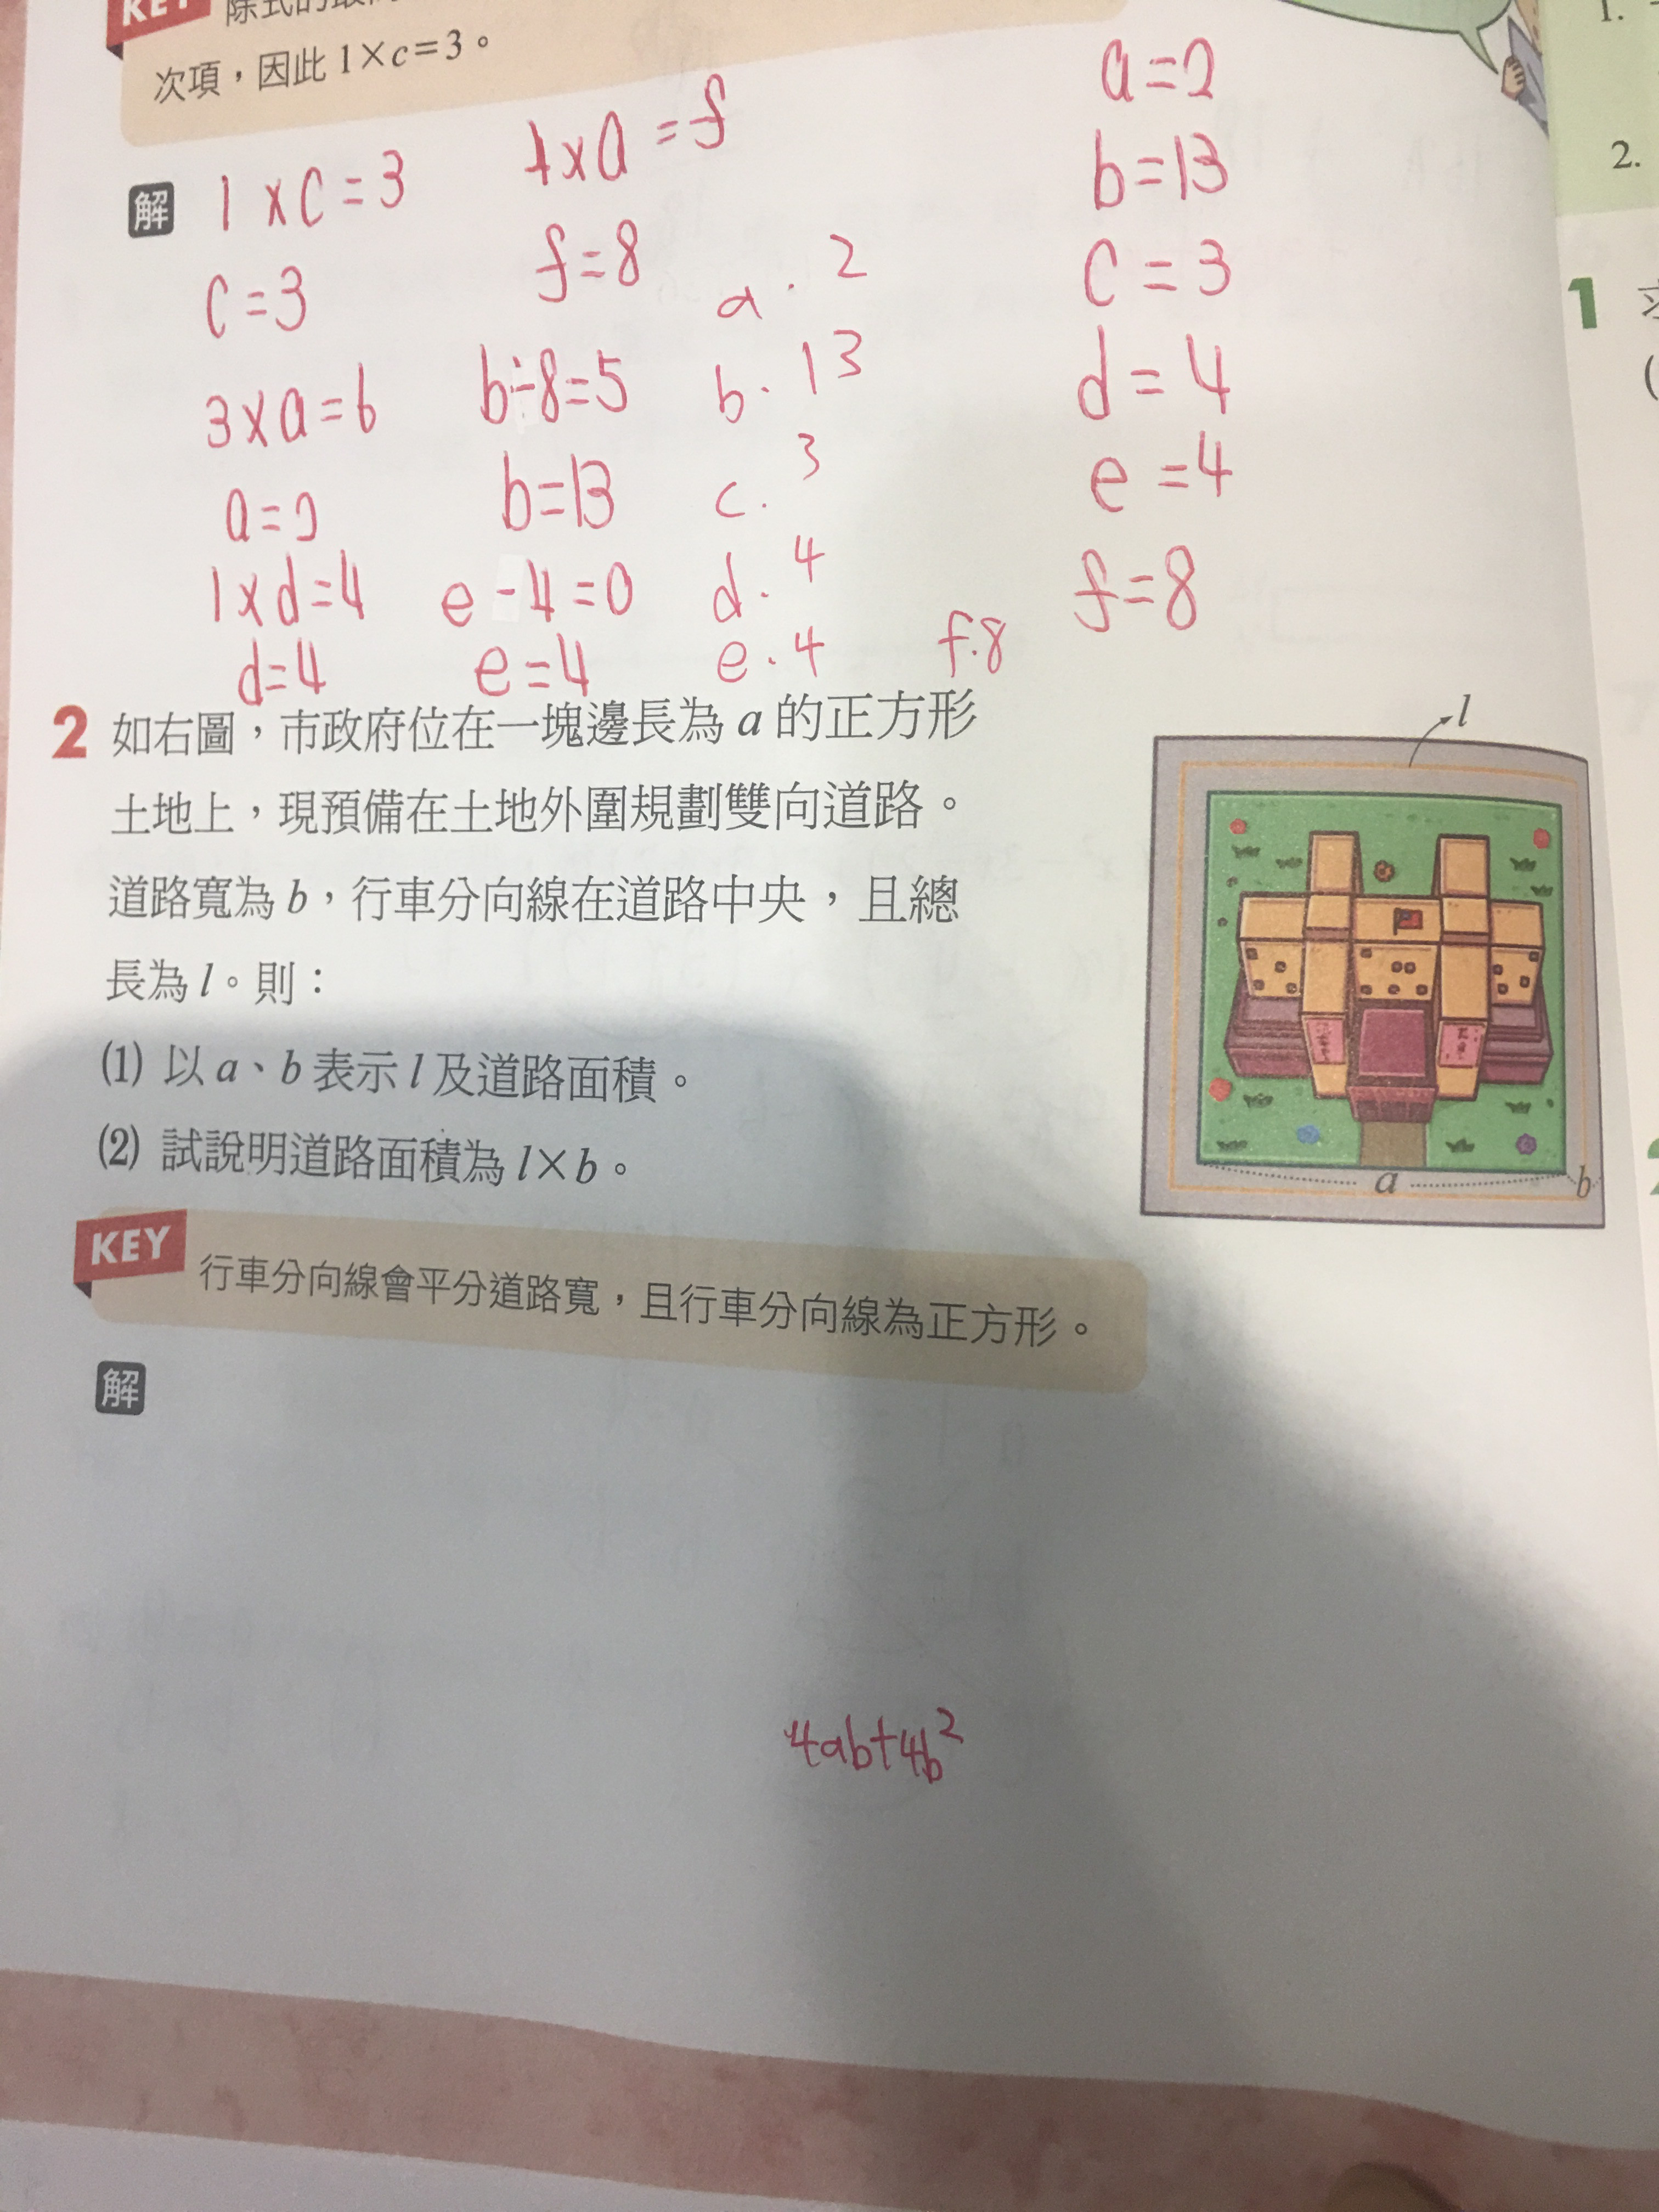 KEY 除式的最高
次項，因此 1×c=3。
解 1×c=3
c=3
3×a=6
1×d=4
d=4
4×a=f
f=8
b-8=5
b=13
e-4=0
e=4
a. 2
b. 13
c. 3
d. 4
e. 4
f. 8
a=2
b=13
c=3
d=4
e=4
f=8
2 如右圖，市政府位在一塊邊長為 a 的正方形
土地上，現預備在土地外圍規劃雙向道路。
道路寬為 b，行車分向線在道路中央，且總
長為 l。則：
⑴ 以 a、b 表示 l 及道路面積。
⑵ 試說明道路面積為 l×b。
l
a
b
KEY 行車分向線會平分道路寬，且行車分向線為正方形。
解
4ab+4b²
1.
2.
1
(